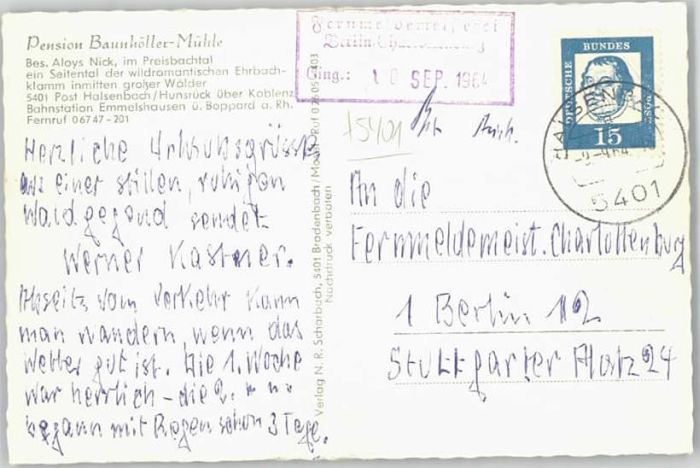 Pension Baunhöller-Mühle
Bes. Aloys Nick, im Preisbachtal
ein Seitental der wildromantischen Ehrbach-
klamm inmitten großer Wälder
5401 Post Halsenbach/Hunsrück über Koblenz
Bahnstation Emmelshausen u. Boppard a. Rh.
Fernruf 06747-201
Herzliche Urlaubsgrüsse
aus einer stillen, ruhigen
Waldgegend sendet
Werner Kastner.
Abseits vom Verkehr kann
man wandern, wenn das
Wetter gut ist. Die 1. Woche
war herrlich – die 2.
begann mit Regen schon 3 Tage.
Verlag N. R. Scharbach, 5401 Brodenbach/Mosel
Nachdruck verboten
Fernmeldemeisterei
Berlin-Charlottenburg
Eing.: 10 SEP. 1964
5401
DEUTSCHE BUNDESPOST
15
5401
An die
Fernmeldemeist. Charlottenburg
1 Berlin 12
Stuttgarter Platz 24